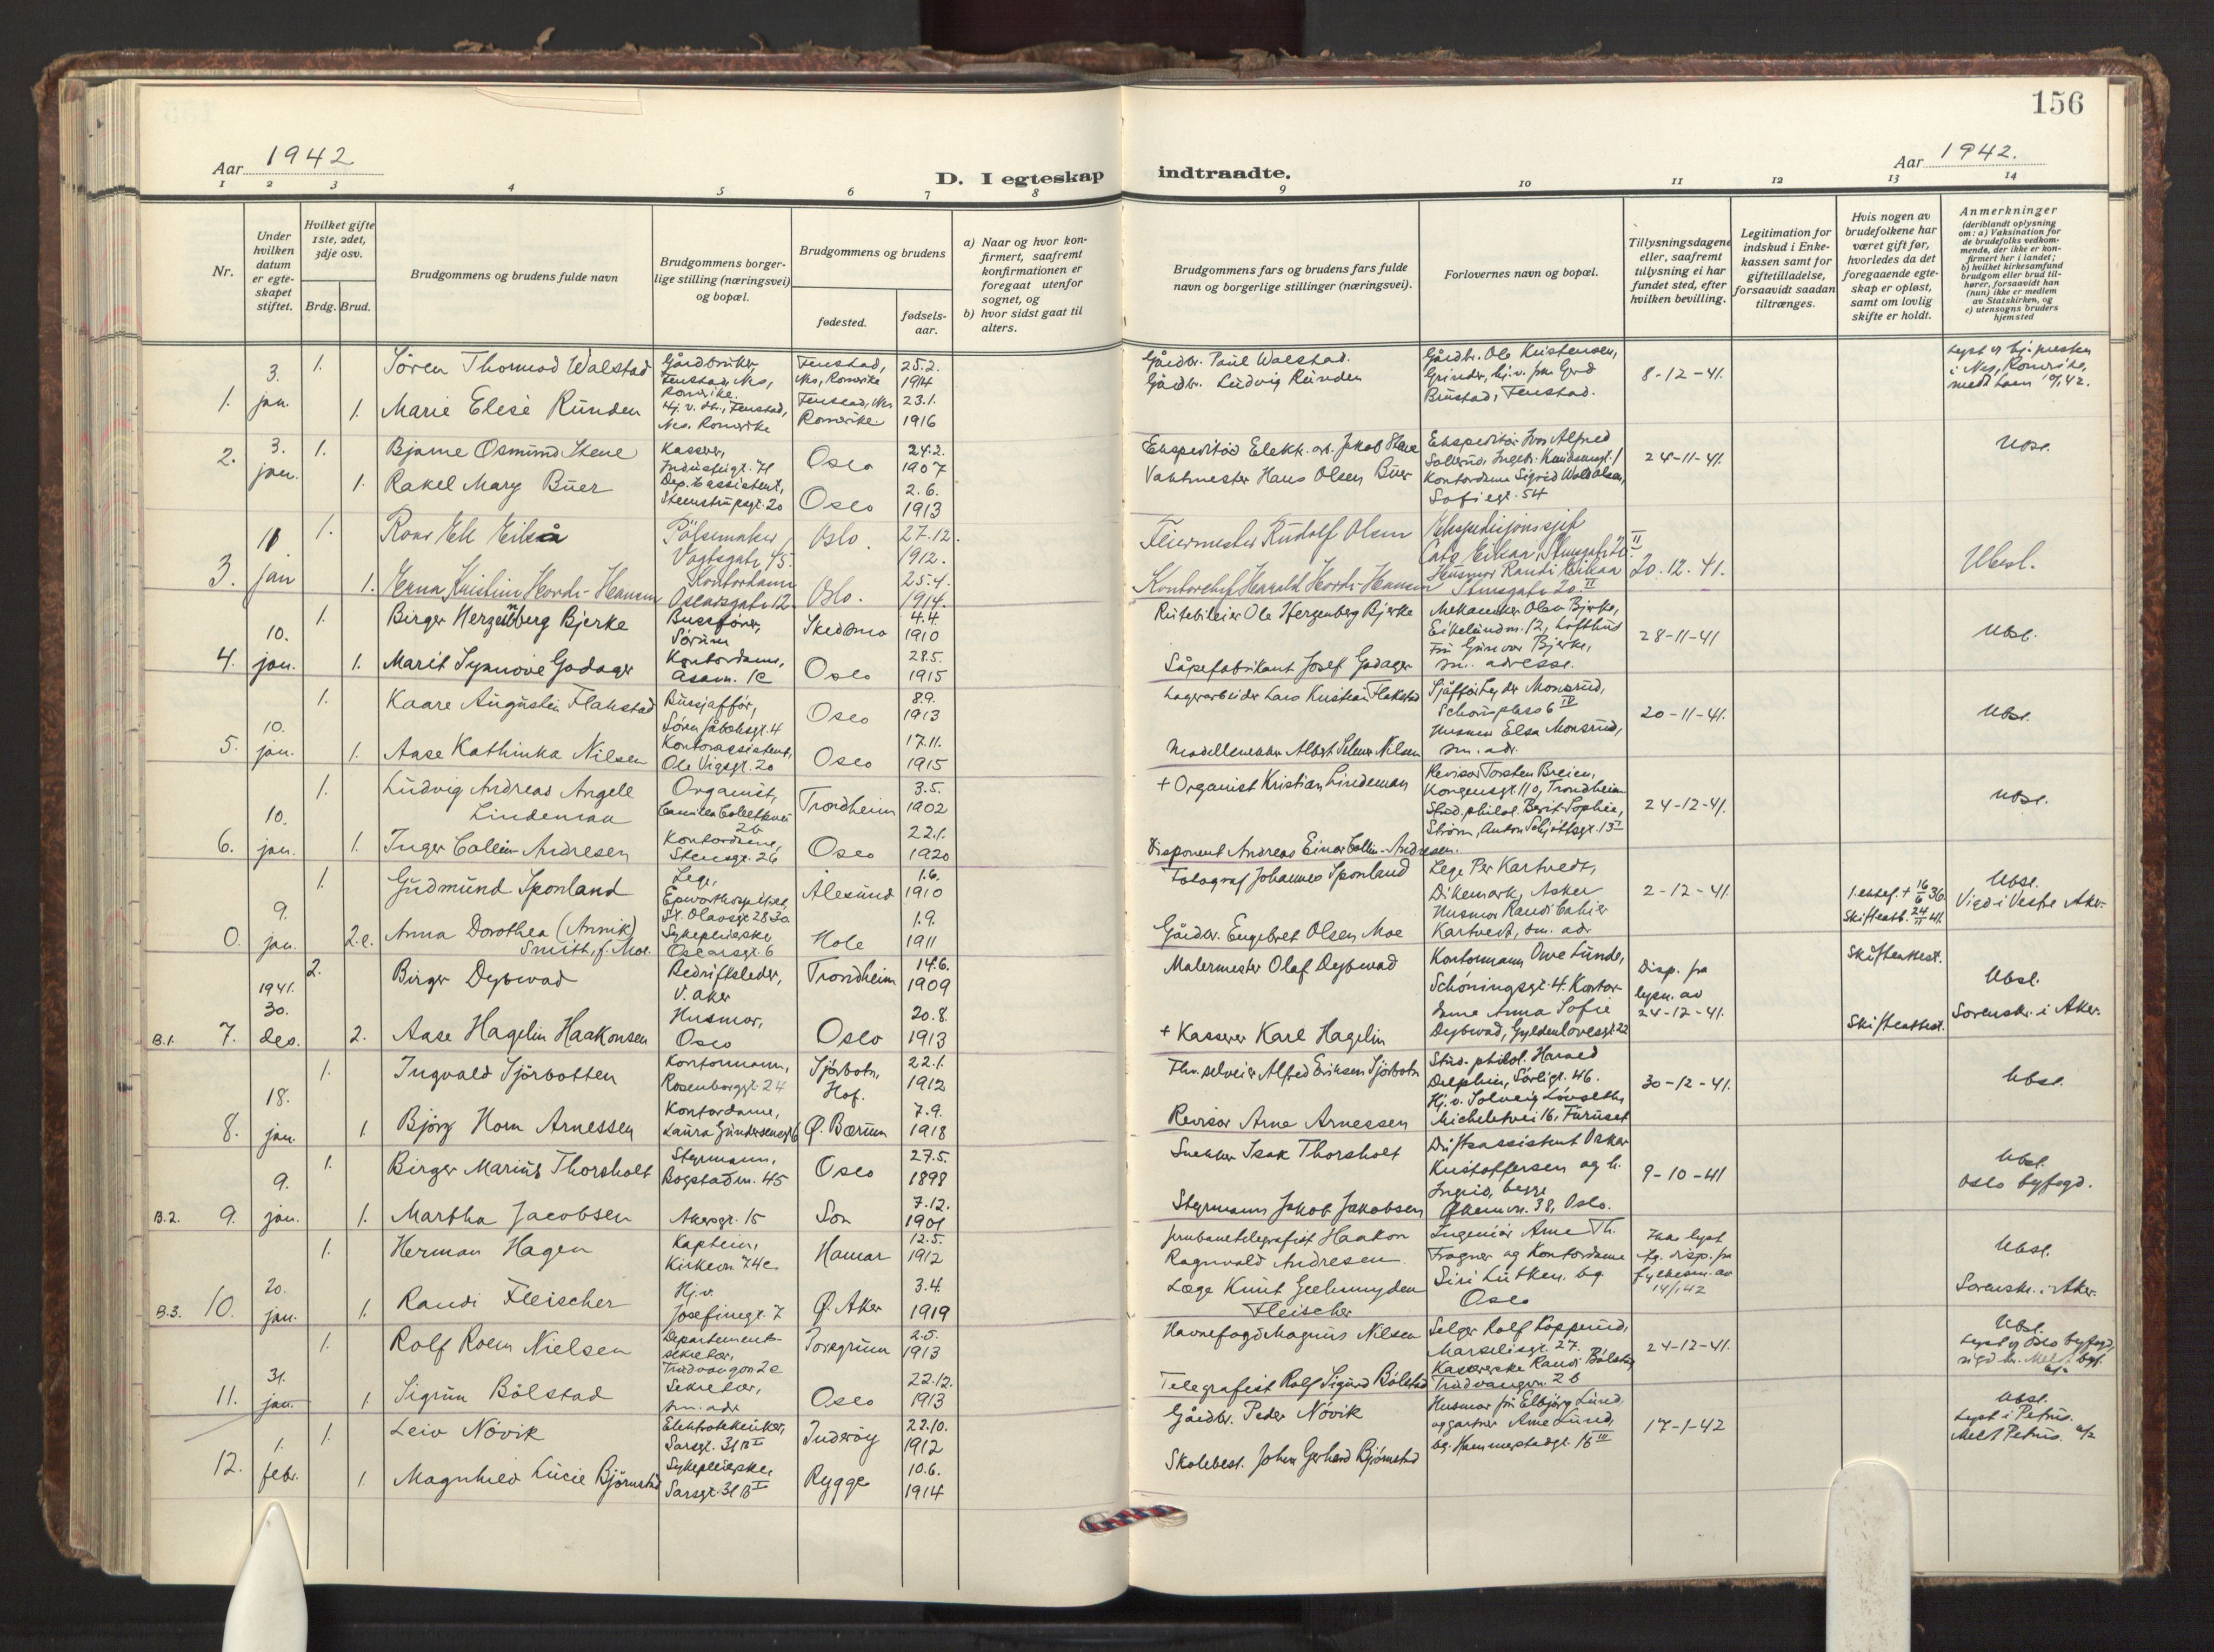 156
Aar 1942.
D. I egteskap indtraadte.
Aar 1942.
1 2 3 4 5 6 7 8 9 10 11 12 13 14
Nr.
Under hvilken datum er egteskapet stiftet.
Hvilket gifte 1ste, 2det, 3dje osv.
Brdg. Brud.
Brudgommens og brudens fulde navn
Brudgommens borgerlige stilling (næringsvei) og bopæl.
Brudgommens og brudens
fødested.
fødselsaar.
a) Naar og hvor konfirmert, saafremt konfirmationen er foregaat utenfor sognet, og
b) hvor sidst gaat til alters.
Brudgommens fars og brudens fars fulde navn og borgerlige stillinger (næringsvei).
Forlovernes navn og bopæl.
Tillysningsdagene eller, saafremt tillysning ei har fundet sted, efter hvilken bevilling.
Legitimation for indskud i Enkekassen samt for giftetilladelse, forsaavidt saadan tiltrænges.
Hvis nogen av brudefolkene har været gift før, hvorledes da det foregaaende egteskap er opløst, samt om lovlig skifte er holdt.
Anmerkninger
(deriblandt oplysning om: a) Vaksination for de brudefolks vedkommende, der ikke er konfirmert her i landet; b) hvilket kirkesamfund brudgom eller brud tilhører, forsaavidt han (hun) ikke er medlem av Statskirken, og c) utensogns bruders hjemsted
1. 3. jan. 1. Sören Thormod Walstad
Gårdbruker Fenstad, Nes, Romerike.
Fenstad, Nes, Romerike 25.2. 1914
Gårdbr. Paul Walstad.
Gårdbr. Ole Kristensen, Grinder, hj.v. frk Gerd Brustad, Fenstad.
8-12-41.
1. Marie Elise Runden
Hj. v. do., Fenstad, Nes, Romerike
Fenstad, Nes Romerike 23.1. 1916
Gårdbr. Ludvig Runden
Lyst v. sj.presten i Nes, Romerike,
2. 3. jan. 1. Bjarne Osmund Stene
Kasserer, Industrigt. 71
Oslo 24.2. 1907
Ekspeditör Elekt. art. Jakob Stene
Ekspeditör Ivar Alfred Sollerud, Ingebr.
24-11-41.
Ubsl.
1. Rakel Mary Buer
Dep. assistent, Stenstrupsgt. 20
Oslo 2.6. 1913
Vaktmester Hans Olsen Buer
Kontordame Sigrid Wold Olsen, Sofiegt. 54
3. 11 jan 1. Roar Elk Eikaa
Pölsemaker Vogtsgate 45.
Oslo. 27.12. 1912.
Feiermester Rudolf Olsen
Ekspedisjonssjef Cato Eikaa Stensgate 20 II
20.12.41.
Ubesl.
1. Erna Kristine Hordi-Hansen
Kontordame Oscarsgate 12
Oslo. 25.4. 1914.
Kontorchef Harald Hordi-Hansen
Husmor Randi Eikaa Stensgate 20 II
4. 10. jan. 1. Birger Herzenberg Bjerke
Bussförer, Sörum
Skedsmo 4.4. 1910
Rutebileier Ole Herzenberg Bjerke
Mekaniker Olav Bjerke, Eikelundv. 12, Lofthus
28-11-41
Ubsl.
1. Marit Synnöve Godager
Kontordame,
Oslo 28.5. 1915
Såpefabrikant Josef Godager
Fru Gunvor Bjerke, sm. adresse.
5. 10. jan. 1. Kaare Augustin Flakstad
Bussjafför, Sören Jåbæksgt. 4
Oslo 8.9. 1913
Lagerarbeider Lars Kristian Flakstad
Sjåfför Leyder Monsrud, Schousplass 6 IV
20-11-41.
Ubsl.
1. Aase Kathinka Nilsen
Kontorassistent, Ole Vigsgt. 20
Oslo 17.11. 1915
Modellsnekker Albert Selmer Nilsen
Husmor Elsa Monsrud, sm. adr.
6. 10. jan. 1. Ludvig Andreas Angell Lindeman
Organist, Camilla Collettsvei 2b
Trondheim 3.5. 1902
+ Organist Kristian Lindeman
Revisor Torsten Breien, Kongensgt. 110, Trondheim
24-12-41.
Ubsl.
1. Inger Collin Andresen
Kontordame, Stensgt. 26
Oslo 22.1. 1920
Disponent Andreas Einar Collin-Andresen.
Stud. philol. Berit Sophie Ström, Anton Schjöttsgt. 15 I
0. 9. jan. 1. Gudmund Sponland
Lege, Epworthospitalet, St. Olavsgt. 28-30
Ålesund 1.6. 1910
Fotograf Johannes Sponland
Lege Per Kartvedt, Dikemark, Asker
2-12-41.
1. ektef. + 16/6 36. Skifteatt. 24/11 41.
Ubsl. Viet i Vestre Aker.
2. e. Anna Dorothea (Annik) Smith, f. Moe.
Sykepleierske Oscarsgt. 6
Hole 1.9. 1911
Gårdbr. Engebret Olsen Moe
Husmor Randi Cahier Kartvedt, sm. adr
B.1. 7. 1941. 30. des. 2. Birger Dybwad
Bedriftsleder, V. Aker
Trondheim 14.6. 1909
Malermester Olaf Dybwad
Kontormann Ove Lunde, Schöningsgt. 4.
Disp. fra lysn. av 24-12-41.
Skifteattest.
Ubsl.
2. Aase Hagelin Haakonsen
Husmor, Oslo
Oslo 20.8. 1913
+ Kasserer Karl Hagelin
Kontordame Anna Sofie Dybwad, Gyldenlovesgt. 22
Skifteattest.
Sorenskr. i Aker.
8. 18. jan. 1. Ingvald Sjörbotten
Kontormann, Rosenborggt. 24
Sjörbotn, Hof. 22.1. 1912
Fhv. selveier Alfred Eriksen Sjörbotn
Stud. philol. Harald Delphin, Sörligt. 46.
30-12-41.
Ubsl.
1. Björg Horn Arnessen
Kontordame, Laura Gundersensgt 6
Ø. Bærum 7.9. 1918
Revisor Arne Arnessen
Hj. v. Solveig Lövseth, Micheletsvei 16, Furuset
B.2. 9. 9. jan. 1. Birger Marius Thorsholt
Styrmann, Bogstadvn. 45
Oslo 27.5. 1898
Snekker Isak Thorsholt
Driftsassistent Oskar Kristoffersen og h. Ingrid, begge
9-10-41
Ubsl. Oslo byfogd.
1. Martha Jacobsen
Akersgt. 15
Son 7.12. 1901
Styrmann Jakob Jakobsen
38, Oslo.
B.3. 10. 20. jan. 1. Herman Hagen
Kaptein, Kirkevn 74c
Hamar 12.5. 1912
Jernbanetelegrafist Haakon Ragnvald Andresen
Ingeniör Arne Th. Fragner og Kontordame Siri Lütken. bg. Oslo
Ikke lyst fg. disp. fra fylkesm. av 14/1 42
Ubsl.
1. Randi Fleischer
Hj.v. Josefinegt. 7
Ø. Aker 3.4. 1919
Læge Knut Geelmuyden Fleischer
Sorenskr. i Aker.
11. 31. jan. 1. Rolf Roem Nielsen
Departementssekretær, Trudvangvn 2c
Porsgrunn 2.5. 1913
Havnefogd Magnus Nilsen
Selger Rolf Kopperud, Marselisgt. 27.
24-12-41.
Ubsl. Lyst v. Oslo byfogd,
1. Sigrun Bölstad
Sekretær, sm. adr.
Oslo 22.12. 1913
Telegrafist Rolf Sigurd Bölstad
Kassererske Randi Bölstad, Trudvangvn. 2 b
12. 1. febr. 1. Leiv Növik
Elektrotekniker, Sarsgt. 31 B I
Inderöy 22.10. 1912
Gårdbr. Peder Növik
Husmor fru Elbjörg Lund, og gartner Arne Lund, bg. Hammerstadgt. 16 III
17-1-42
Ubsl. Lyst i Petrus. Meldt Petrus.
1. Magnhild Lucie Björnstad
Sykepleierske Sarsgt. 31 B I
Rygge 10.6. 1914
Skolebest. Johan Gerhard Björnstad